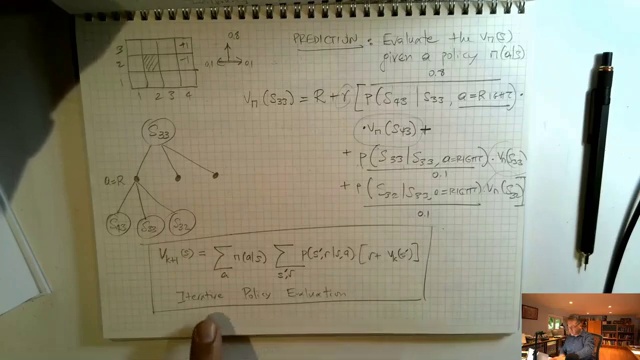 PREDICTION: Evaluate the Vπ(s)
given a policy π(a|s)
3
2
1
+1
-1
1 2 3 4
0.8
0.1 0.1
0.8
Vπ(S33) = R + γ [ p(S43 | S33, a=RIGHT) ·
· Vπ(S43) +
+ p(S33 | S33, a=RIGHT) · Vπ(S33)
0.1
+ p(S32 | S33, a=RIGHT) · Vπ(S32) ]
0.1
S33
a=R
S43 S33 S32
Vk+1(s) = Σa π(a|s) Σs',r p(s',r|s,a) [ r + γk(s') ]
Iterative Policy Evaluation